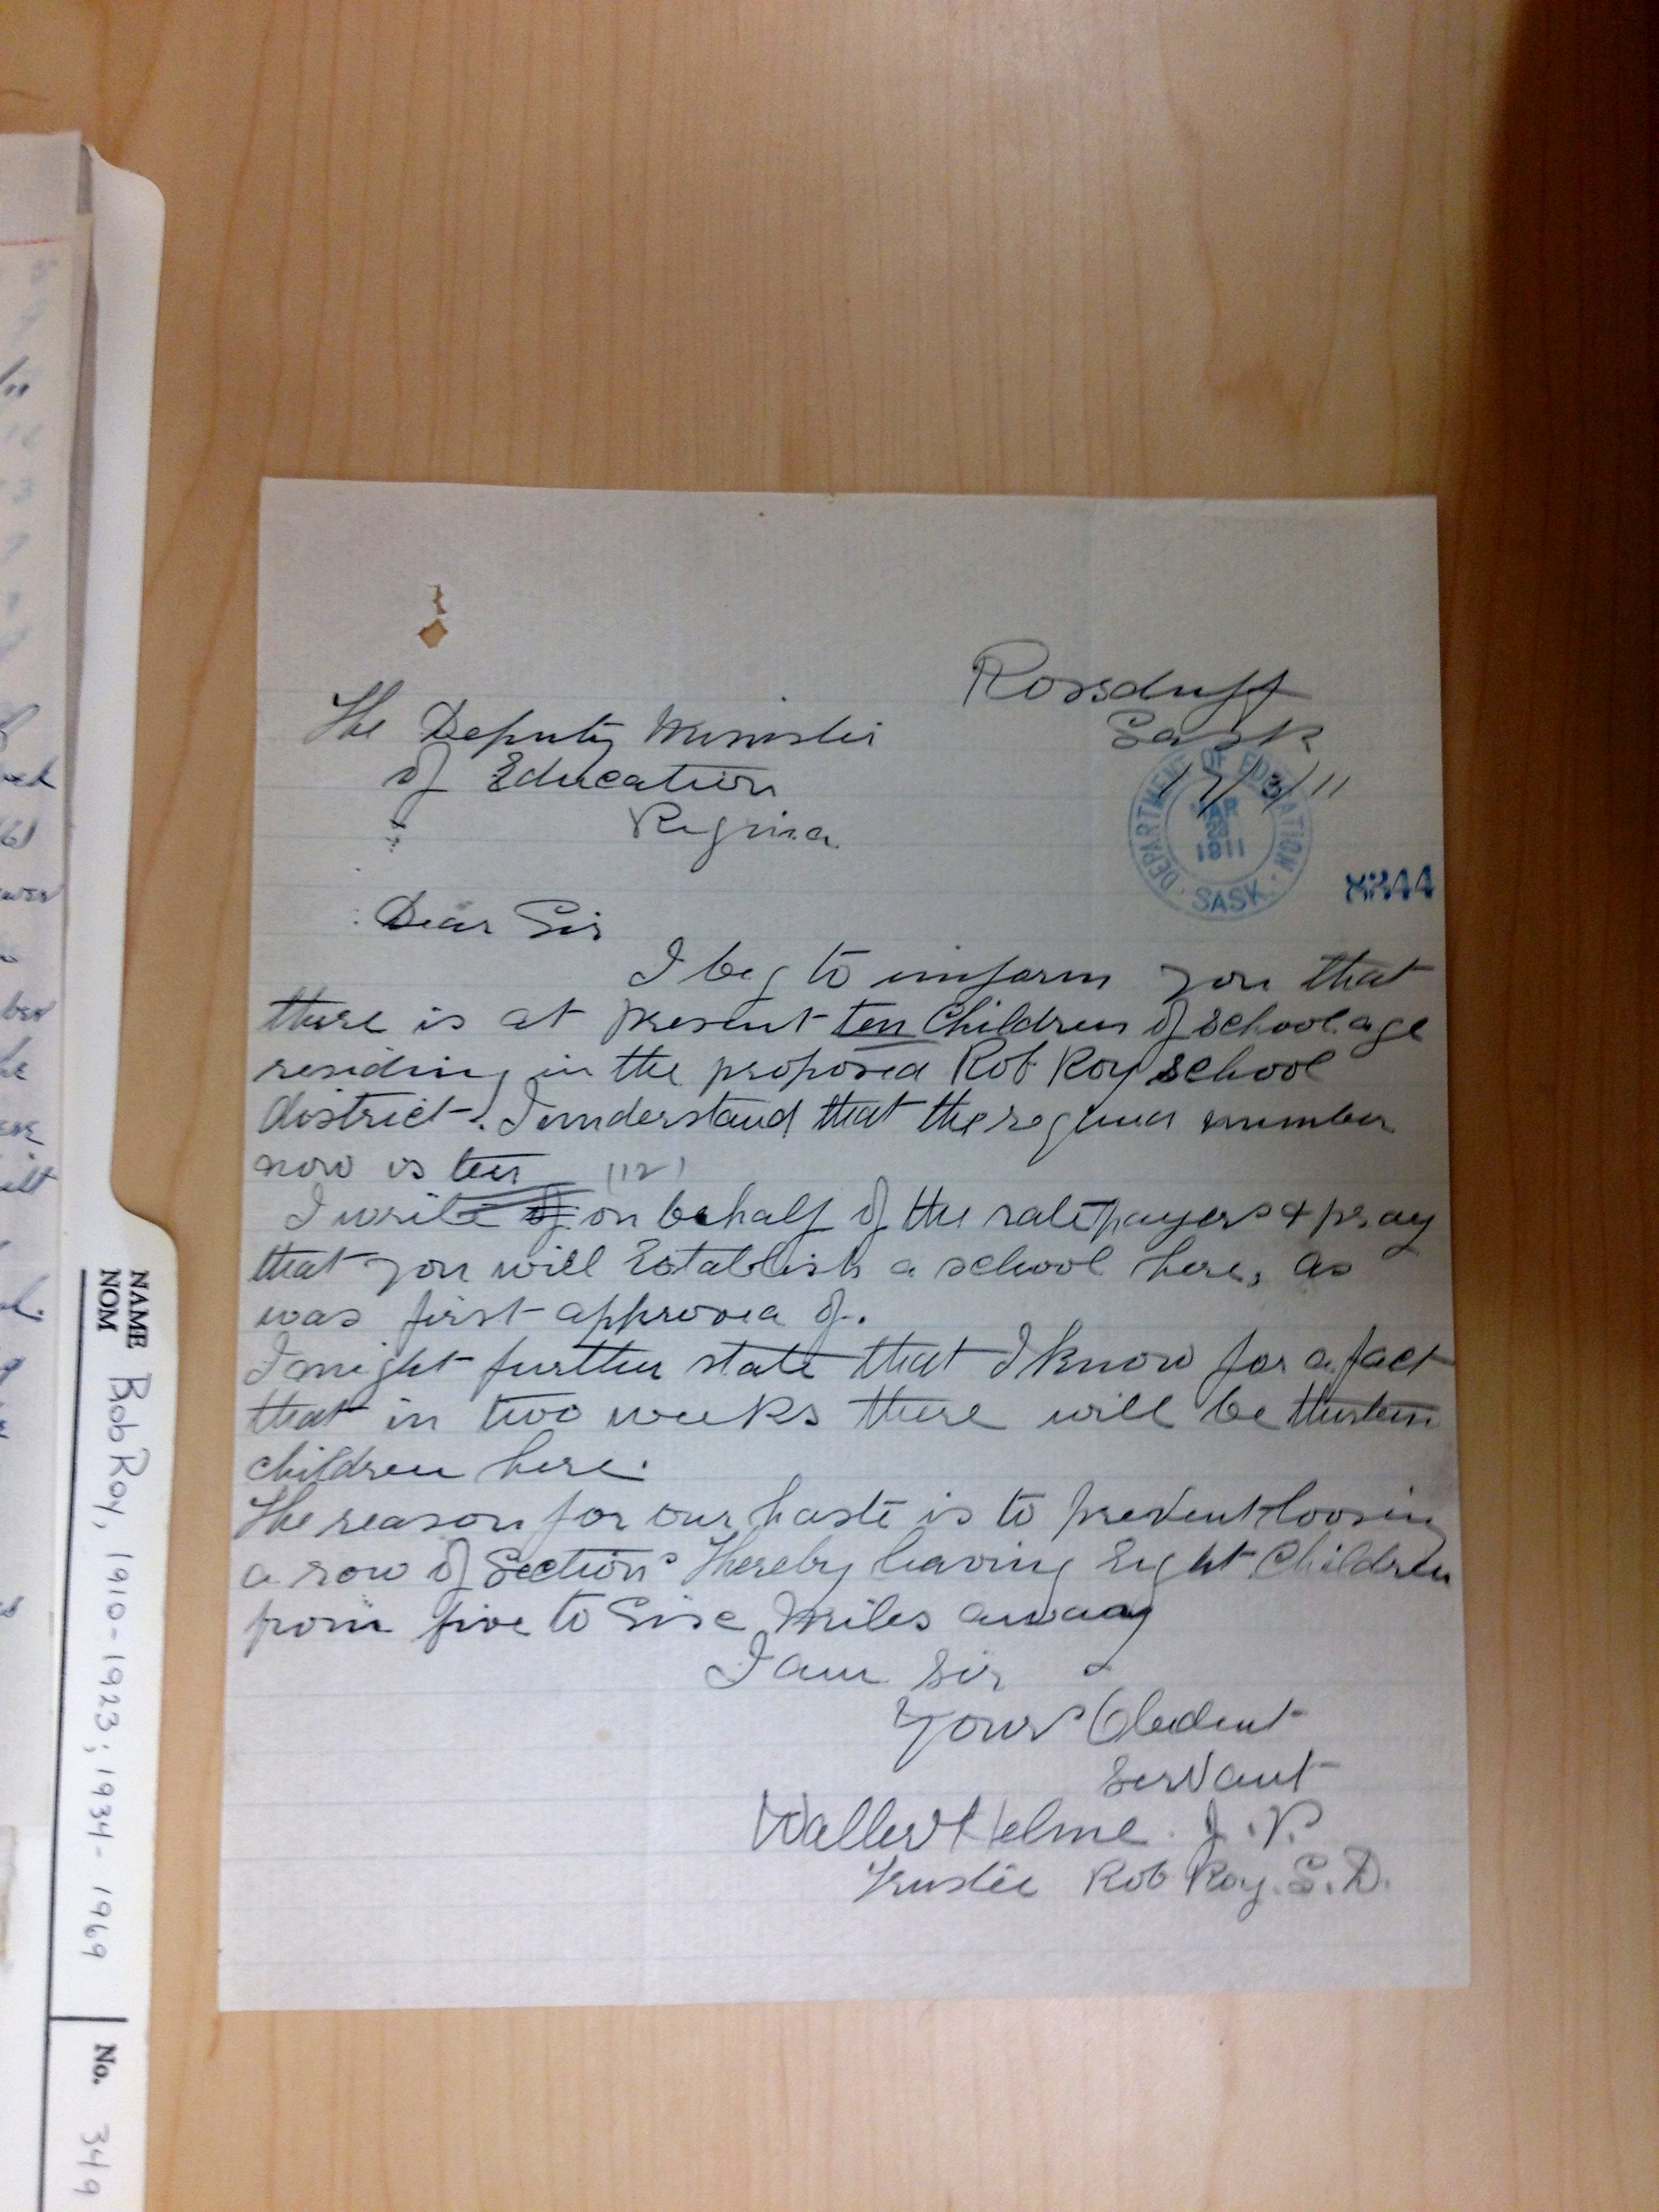 Rossduff
Sask
17/3/11
The Deputy Minister
of Education
Regina
DEPARTMENT OF EDUCATION
MAR
1911
SASK.
8244
Dear Sir
I beg to inform you that
there is at present ten Children of School age
residing in the proposed Rob Roy school
district. I understand that the required number
now is ten (12)
I write of on behalf of the ratepayers & pray
that you will Establish a school here, as
was first approved of.
I might further state that I know for a fact
that in two weeks there will be thirteen
children here.
The reason for our haste is to prevent loosing
a row of Sections Thereby leaving Eight Children
from five to Six Miles away
I am Sir
Yours Obedient
Servant
Walter Helme J.P.
Trustee Rob Roy. S.D.
NAME
NOM
Bob Roy, 1910-1923; 1934-1969
No. 349